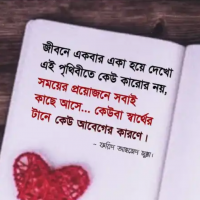 জীবনে একবার একা হয়ে দেখো
এই পৃথিবীতে কেউ কারোর নয়,
সময়ের প্রয়োজনে সবাই
কাছে আসে... কেউবা স্বার্থের
টানে কেউ আবেগের কারণে।
- ফরিদ আহমেদ মুন্না।